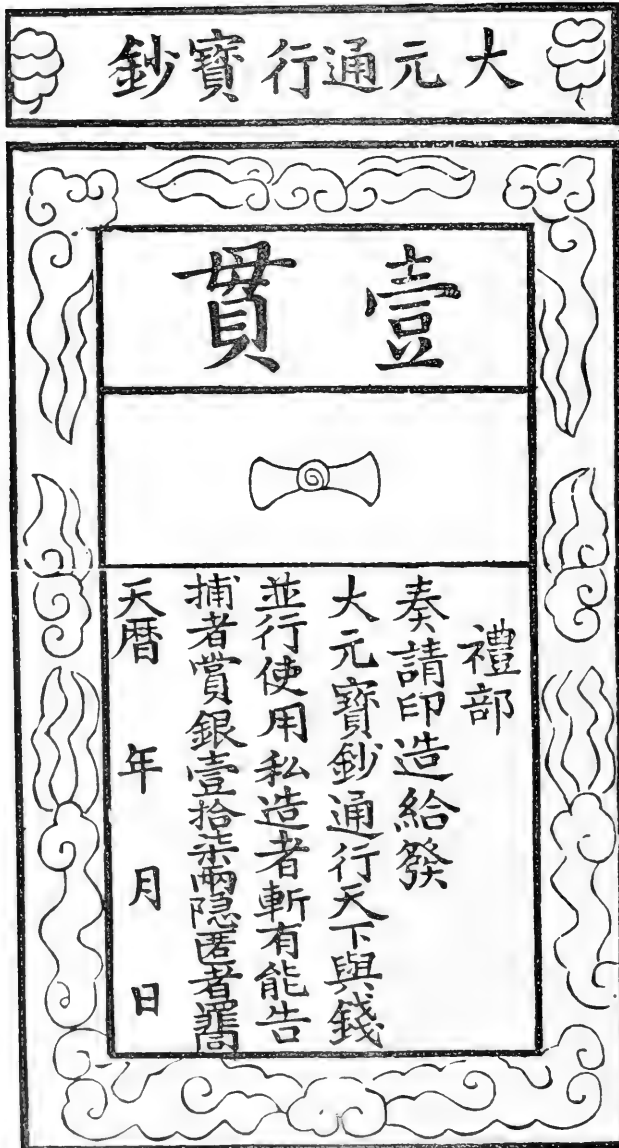 大元通行寶鈔
壹貫
禮部
奏請印造給發
大元寶鈔通行天下與錢
並行使用私造者斬有能告
捕者賞銀壹拾柒兩隐匿者罪同
天曆 年 月 日